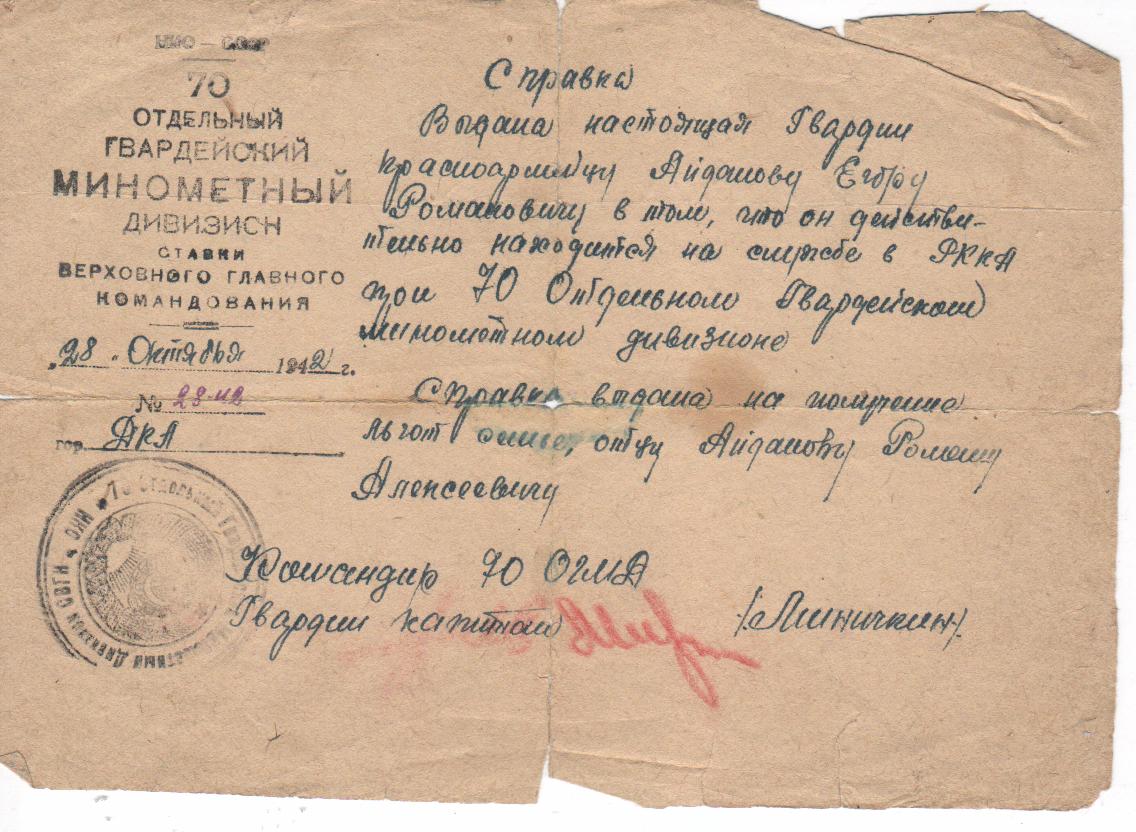 НКО — СССР
70
ОТДЕЛЬНЫЙ
ГВАРДЕЙСКИЙ
МИНОМЕТНЫЙ
ДИВИЗИОН
СТАВКИ
ВЕРХОВНОГО ГЛАВНОГО
КОМАНДОВАНИЯ
„28 " Октября 1942 г.
№
гор. ДКА
Справка
Выдана настоящая Гвардии
красноармейцу Айданову Егору
Романовичу в том, что он действи-
тельно находится на службе в РККА
при 70 Отдельном Гвардейском
Минометном дивизионе
Справка выдана на получение
льгот семье, отцу Айданову Роману
Алексеевичу
Командир 70 ОГМД
Гвардии капитан /:Линичкин:/
НКО * 70 ОТДЕЛЬНЫЙ
ДИВИЗИОН СВГК